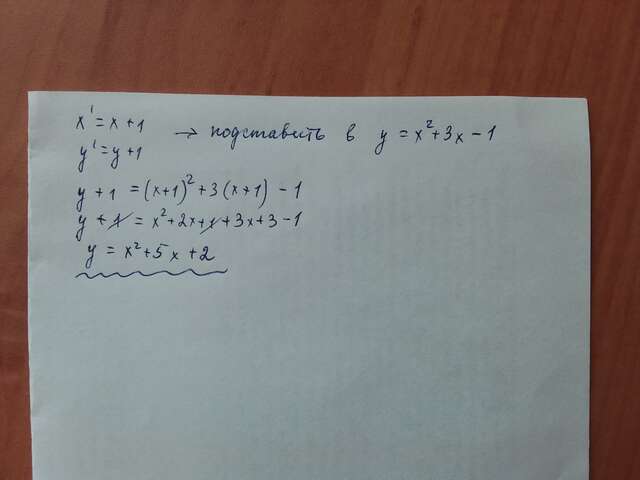 x' = x + 1
→ подставить в y = x² + 3x - 1
y' = y + 1
y + 1 = (x+1)² + 3(x+1) - 1
y + 1 = x² + 2x + 1 + 3x + 3 - 1
y = x² + 5x + 2